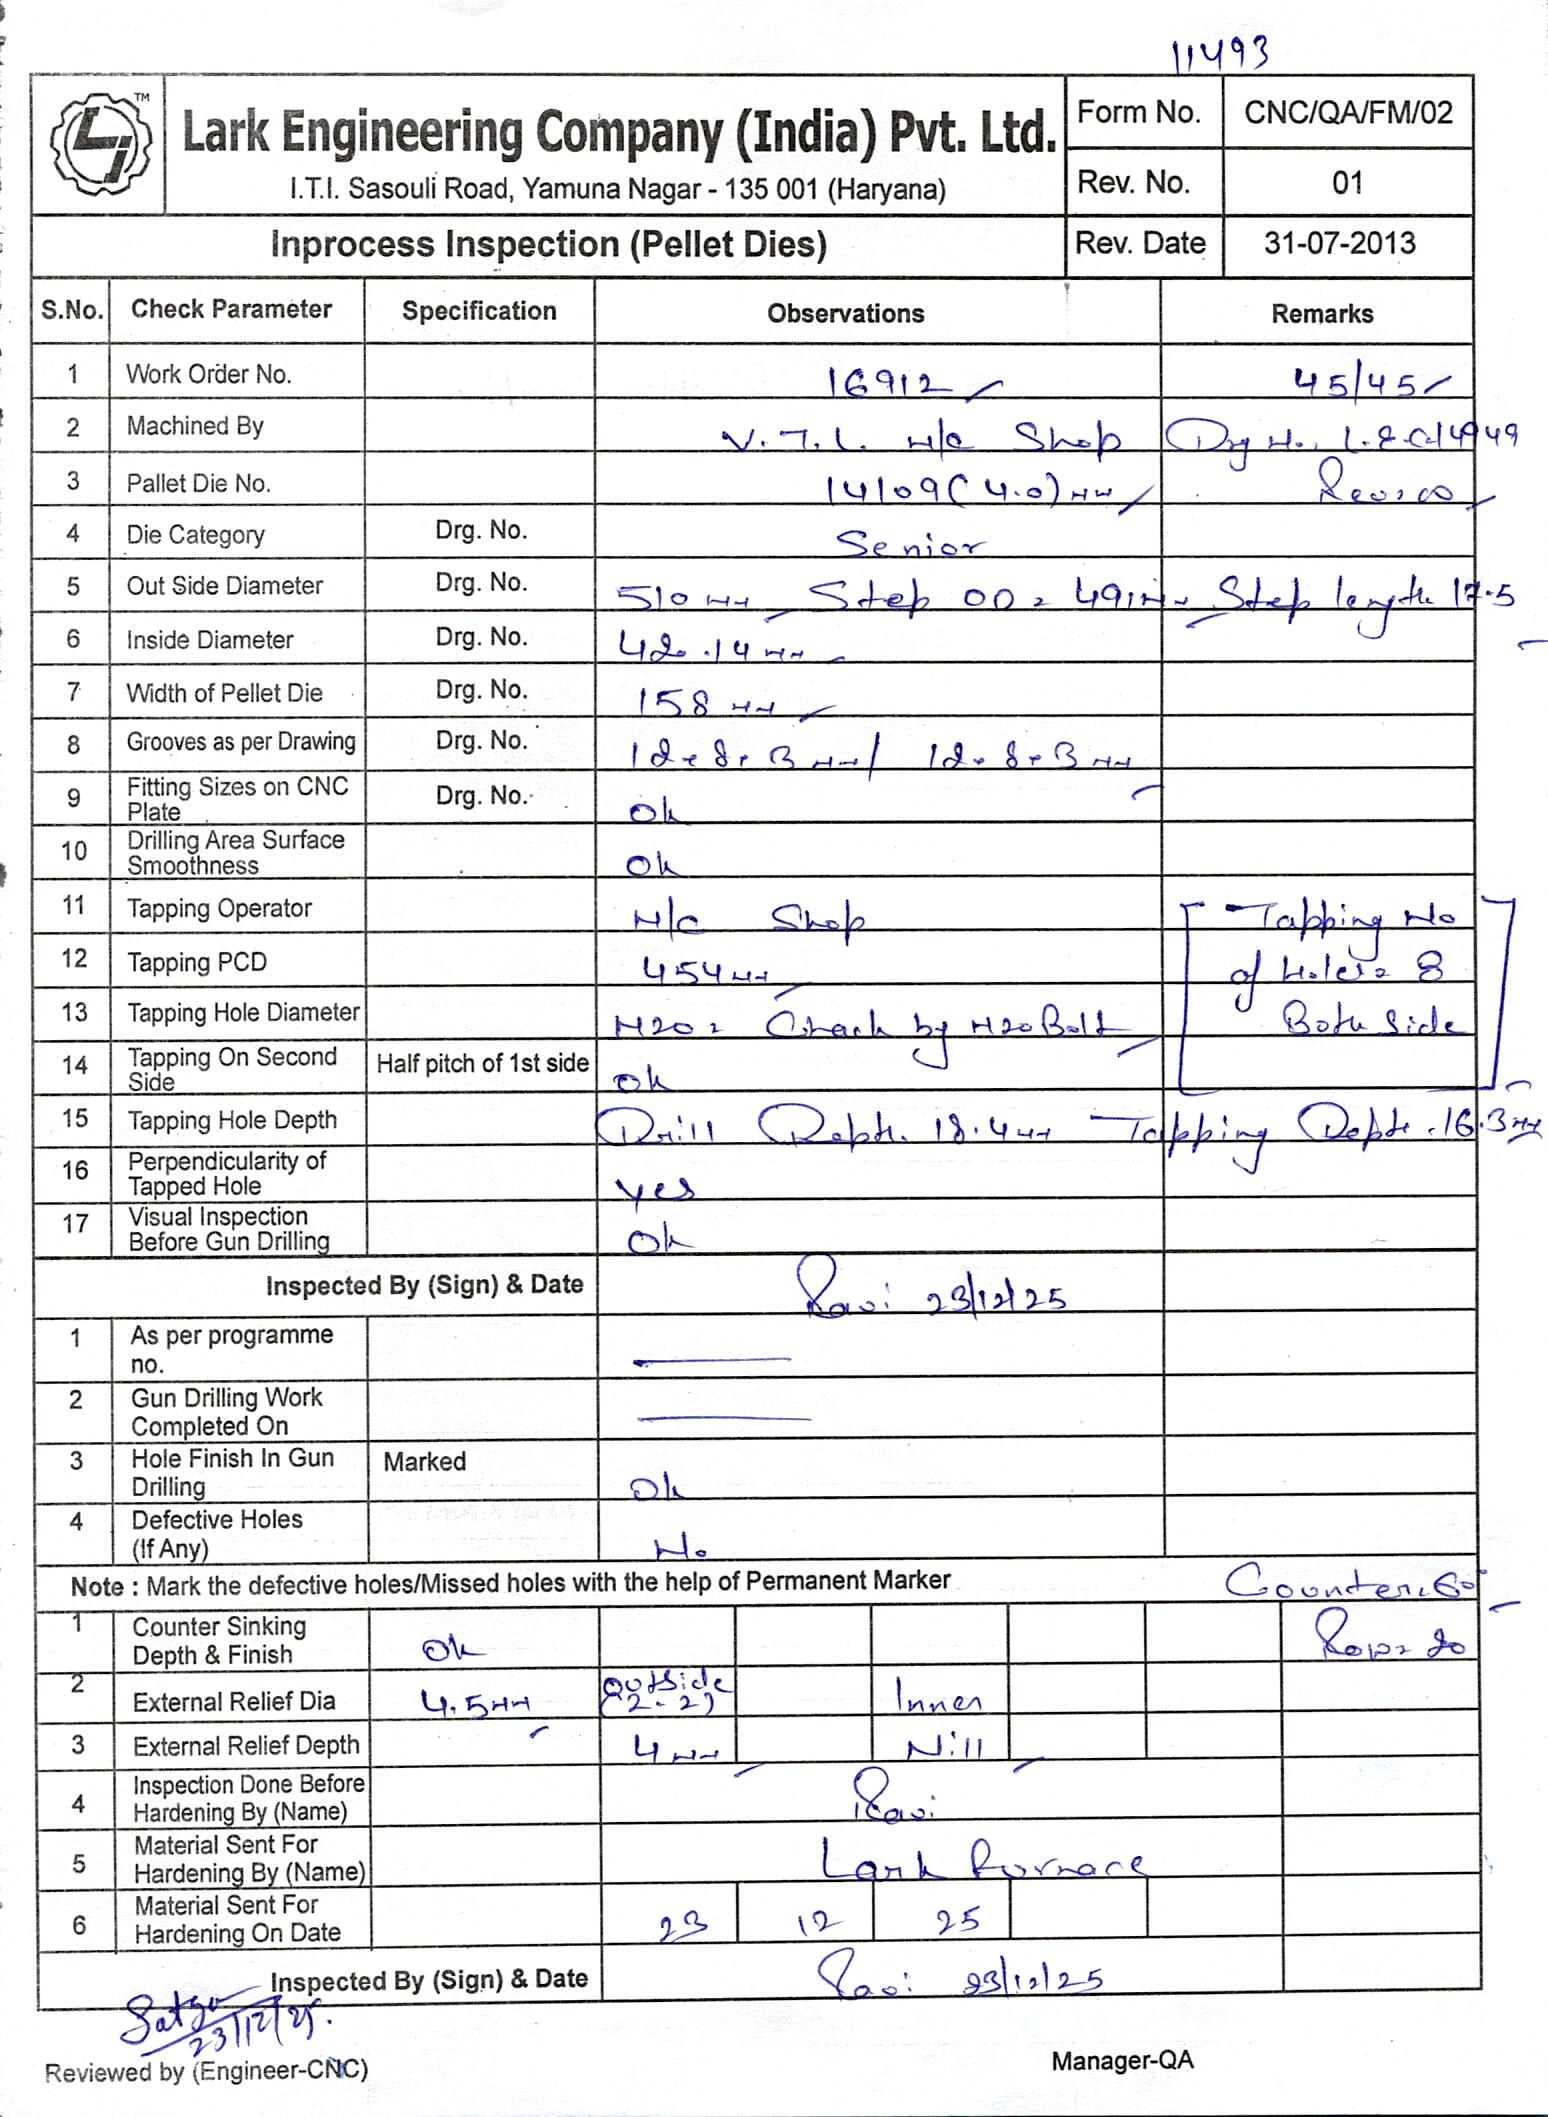 11493
LJ TM
Lark Engineering Company (India) Pvt. Ltd.
I.T.I. Sasouli Road, Yamuna Nagar - 135 001 (Haryana)
Form No. CNC/QA/FM/02
Rev. No. 01
Inprocess Inspection (Pellet Dies)
Rev. Date 31-07-2013
S.No. Check Parameter Specification Observations Remarks
1 Work Order No. 16912 45/45
2 Machined By V.T.L. M/C Shop Drg No. L.E.C/4949
3 Pallet Die No. 14109(4.0)mm Rev:00
4 Die Category Drg. No. Senior
5 Out Side Diameter Drg. No. 510mm Step OD = 491mm Step length 17.5
6 Inside Diameter Drg. No. 420.14mm
7 Width of Pellet Die Drg. No. 158mm
8 Grooves as per Drawing Drg. No.
9 Fitting Sizes on CNC Plate Drg. No. Ok
10 Drilling Area Surface Smoothness Ok
11 Tapping Operator M/C Shop Tapping No
12 Tapping PCD 454mm of Holes = 8
13 Tapping Hole Diameter M20 = Check by M20 Bolt Both Side
14 Tapping On Second Side Half pitch of 1st side Ok
15 Tapping Hole Depth Drill Depth. 18.4mm Tapping Depth.16.3mm
16 Perpendicularity of Tapped Hole Yes
17 Visual Inspection Before Gun Drilling Ok
Inspected By (Sign) & Date Ravi 23/12/25
1 As per programme no.
2 Gun Drilling Work Completed On
3 Hole Finish In Gun Drilling Marked Ok
4 Defective Holes (If Any) No
Note : Mark the defective holes/Missed holes with the help of Permanent Marker Counter = 60°
1 Counter Sinking Depth & Finish Ok Row = 20
2 External Relief Dia 4.5mm Outside (2-2) Inner
3 External Relief Depth 4mm Nill
4 Inspection Done Before Hardening By (Name) Ravi
5 Material Sent For Hardening By (Name) Lark Furnace
6 Material Sent For Hardening On Date 23 12 25
Inspected By (Sign) & Date Ravi 23/12/25
23/12/25.
Reviewed by (Engineer-CNC)
Manager-QA